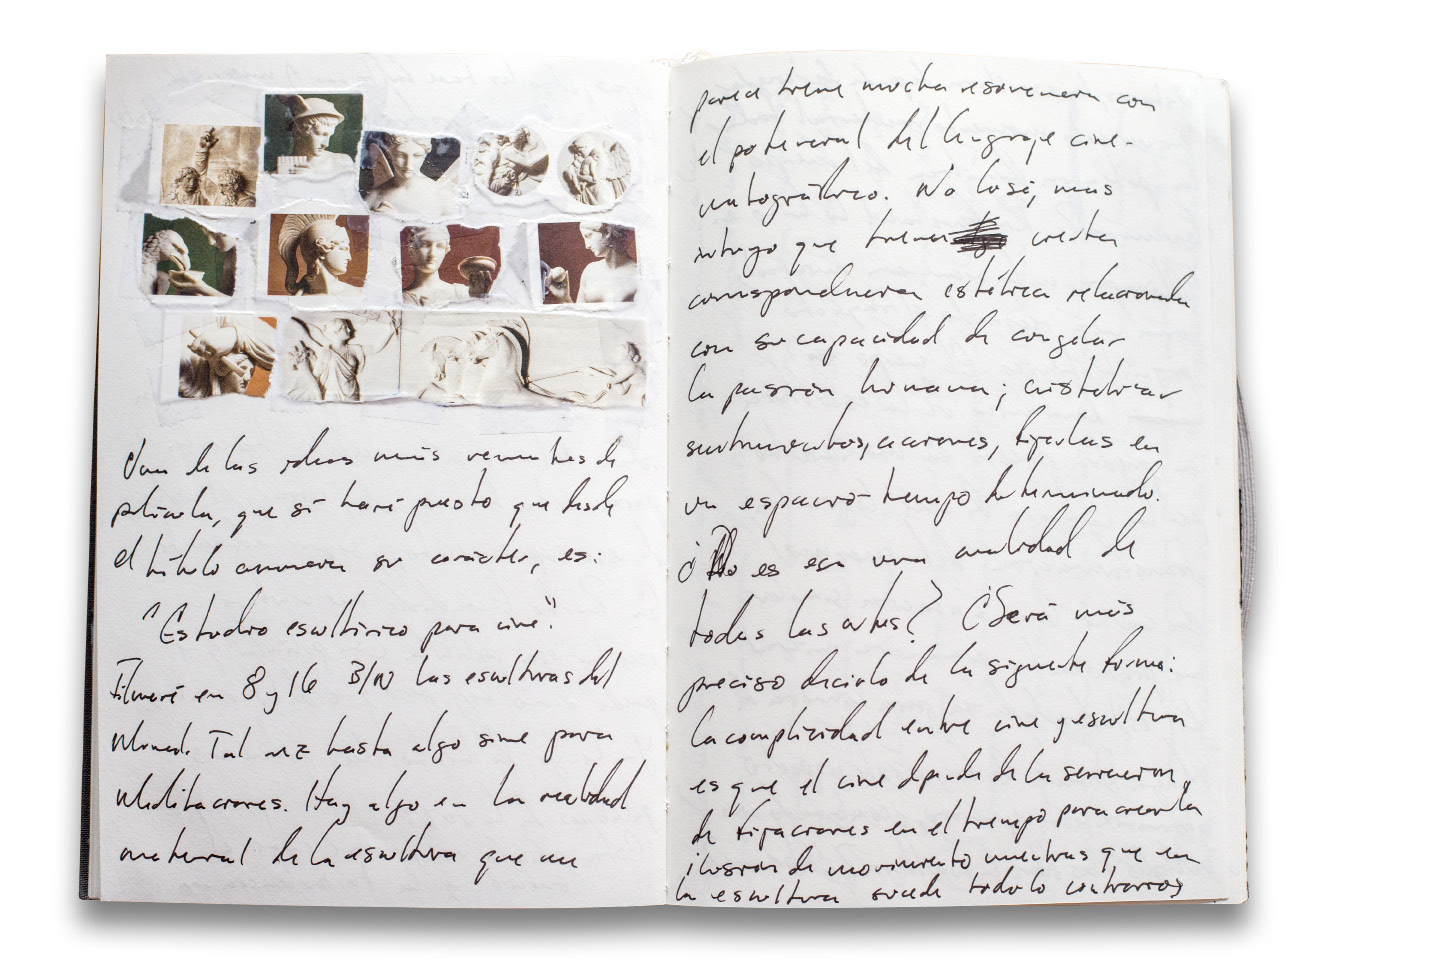 Una de las ideas más recurrentes de
película, que sí haré puesto que desde
el título anuncia su carácter, es:
"Estudio escultórico para cine".
Filmaré en 8 y 16 B/N las esculturas del
Munal. Tal vez hasta algo sirve para
Meditaciones. Hay algo en la realidad
material de la escultura que me
parece tiene mucha resonancia con
el potencial del lenguaje cine-
matográfico. No lo sé, mas
intuyo que tienen cierta
correspondencia estética relacionada
con su capacidad de congelar
la pasión humana; cristalizar
sentimientos, acciones, figuras en
un espacio-tiempo determinado.
¿No es esa una cualidad de
todas las artes? ¿Será más
preciso decirlo de la siguiente forma:
la complicidad entre cine y escultura
es que el cine depende de la sensación
de fijaciones en el tiempo para crear la
ilusión de movimiento mientras que en
la escultura sucede todo lo contrario?